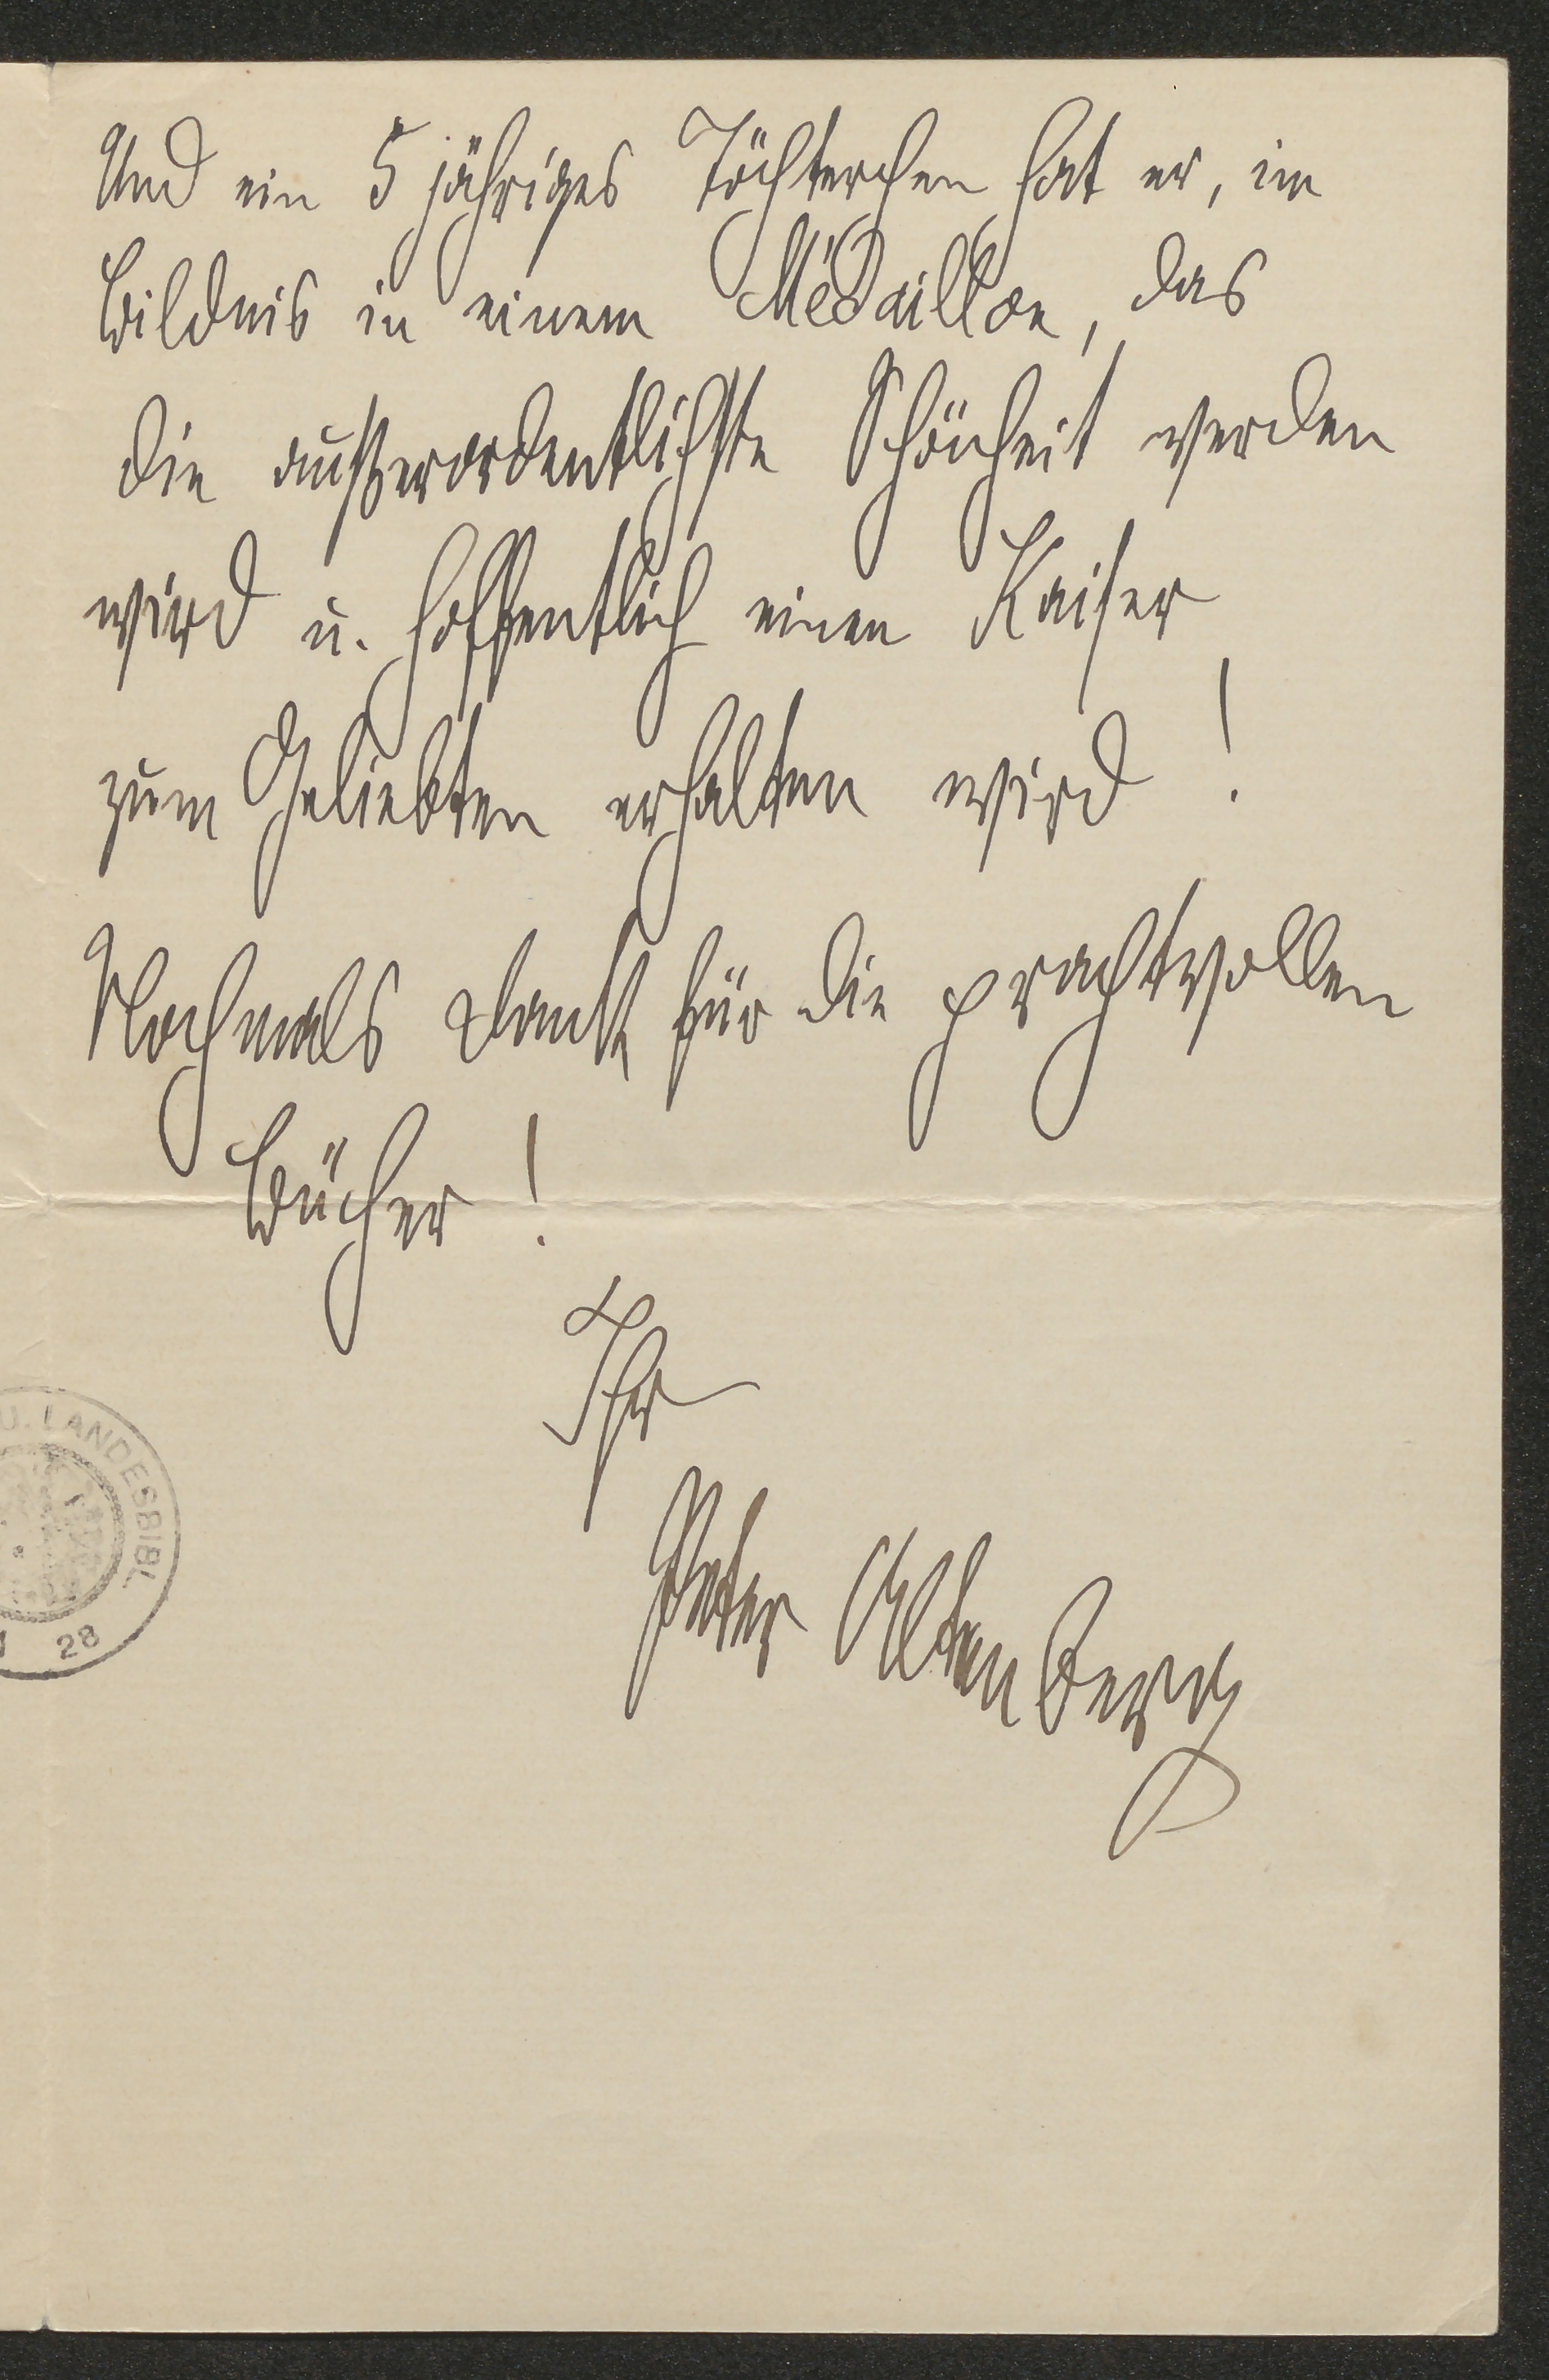 Und ein 5 jähriges Töchterchen hat er, im
Bildnis in einem Médaillon, das
die außerordentlichste Schönheit werden
wird u. hoffentlich einen Kaiser
zum Geliebten erhalten wird!
Nochmals Dank für die prachtvollen
Bücher!
Ihr
Peter Altenberg
U. LANDESBIBL
28